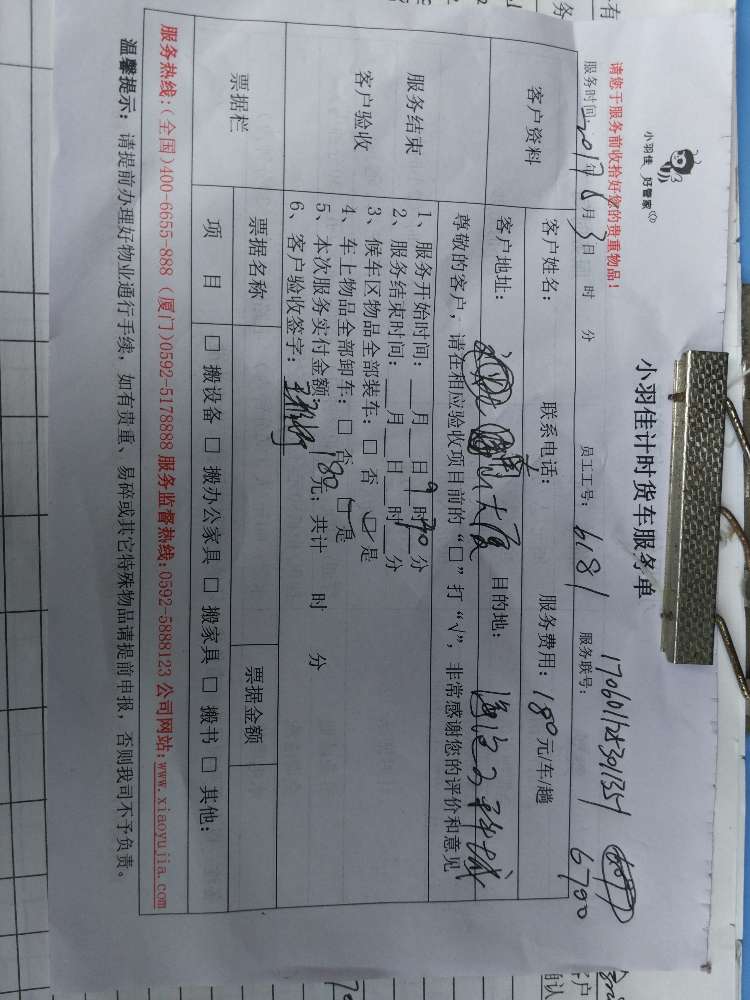 小羽佳 好管家
小羽佳计时货车服务单
请您于服务前收拾好您的贵重物品!
服务时间:2017年6月3日 时 分 员工工号:6181 服务联号:
6700
客户资料
客户姓名: 联系电话: 服务费用:180元/车/趟
客户地址: 大厦 目的地:
尊敬的客户,请在相应验收项目前的“□”打“√”,非常感谢您的评价和意见
服务结束
客户验收
1、服务开始时间: 月 日 9时 分
2、服务结束时间: 月 日 时 分
3、候车区物品全部装车:□ 否 □ 是
4、车上物品全部卸车:□ 否 □ 是
5、本次服务实付金额:180元; 共计 时 分
6、客户验收签字:
票据栏
票据名称 票据金额
项 目 □ 搬设备 □ 搬办公家具 □ 搬家具 □ 搬书 □ 其他:
服务热线:(全国)400-6655-888 (厦门)0592-5178888 服务监督热线:0592-5888123 公司网站:www.xiaoyujia.com
温馨提示:请提前办理好物业通行手续,如有贵重、易碎或其它特殊物品请提前申报,否则我司不予负责。